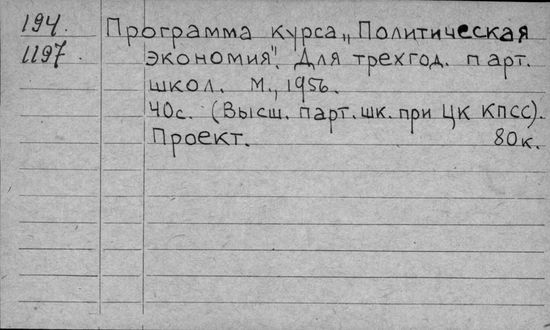 194. Программа курса „Политическая
1197. экономия". Для трехгод. парт.
школ. М., 1956.
40с. (Высш. парт. шк. при ЦК КПСС).
Проект. 80к.